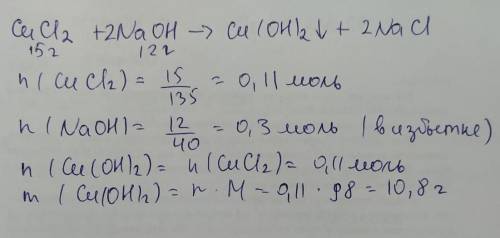 CuCl2 + 2NaOH → Cu(OH)2↓ + 2NaCl
15г 12г
n (CuCl2) = 15/135 = 0,11 моль
n (NaOH) = 12/40 = 0,3 моль (в избытке)
n (Cu(OH)2) = n (CuCl2) = 0,11 моль
m (Cu(OH)2) = n · M = 0,11 · 98 = 10,8 г